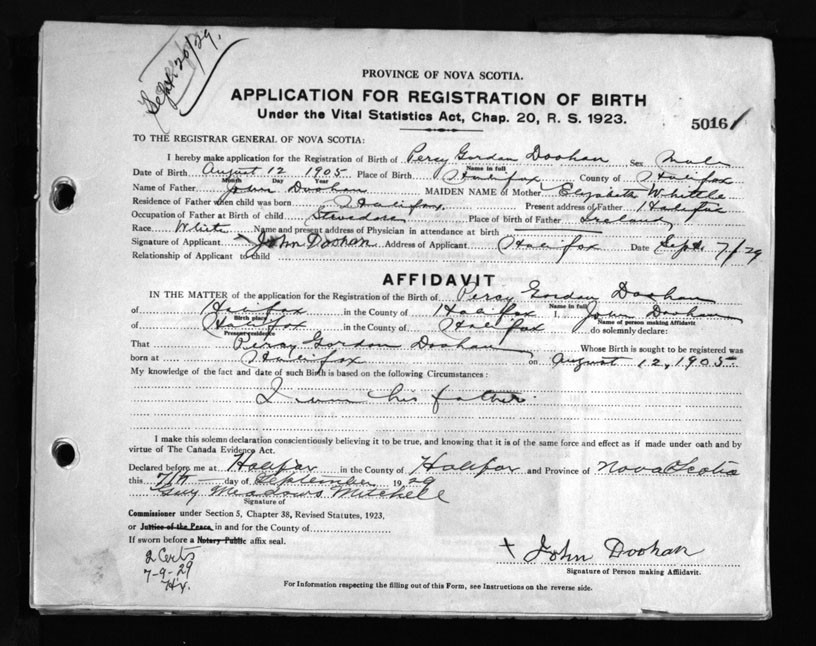 Sept 20/29.
PROVINCE OF NOVA SCOTIA.
APPLICATION FOR REGISTRATION OF BIRTH
Under the Vital Statistics Act, Chap. 20, R. S. 1923.
50161
TO THE REGISTRAR GENERAL OF NOVA SCOTIA:
I hereby make application for the Registration of Birth of Percy Gordon Doohan Sex Male
Name in full
Date of Birth August 12 1905 Place of Birth Halifax County of Halifax
Month Day Year
Name of Father John Doohan MAIDEN NAME of Mother Elizabeth Whittle
Residence of Father when child was born Halifax Present address of Father Halifax
Occupation of Father at Birth of child Stevedore Place of birth of Father Ireland
Race White Name and present address of Physician in attendance at birth
Signature of Applicant x John Doohan Address of Applicant Halifax Date Sept. 7/29
Relationship of Applicant to child
AFFIDAVIT
IN THE MATTER of the application for the Registration of the Birth of Percy Gordon Doohan
Name in full
of Halifax in the County of Halifax I, John Doohan
Birth place Name of person making Affidavit
of Halifax in the County of Halifax do solemnly declare:
Present residence
That Percy Gordon Doohan Whose Birth is sought to be registered was
born at Halifax on August 12, 1905
My knowledge of the fact and date of such Birth is based on the following Circumstances:
I am his father.
I make this solemn declaration conscientiously believing it to be true, and knowing that it is of the same force and effect as if made under oath and by
virtue of The Canada Evidence Act.
Declared before me at Halifax in the County of Halifax and Province of Nova Scotia
this 7th day of September 1929
Guy Meadows Mitchell
Signature of
Commissioner under Section 5, Chapter 38, Revised Statutes, 1923,
or Justice of the Peace in and for the County of
If sworn before a Notary Public affix seal.
2 Certs
7-9-29
Hx.
x John Doohan
Signature of Person making Affidavit.
For Information respecting the filling out of this Form, see Instructions on the reverse side.